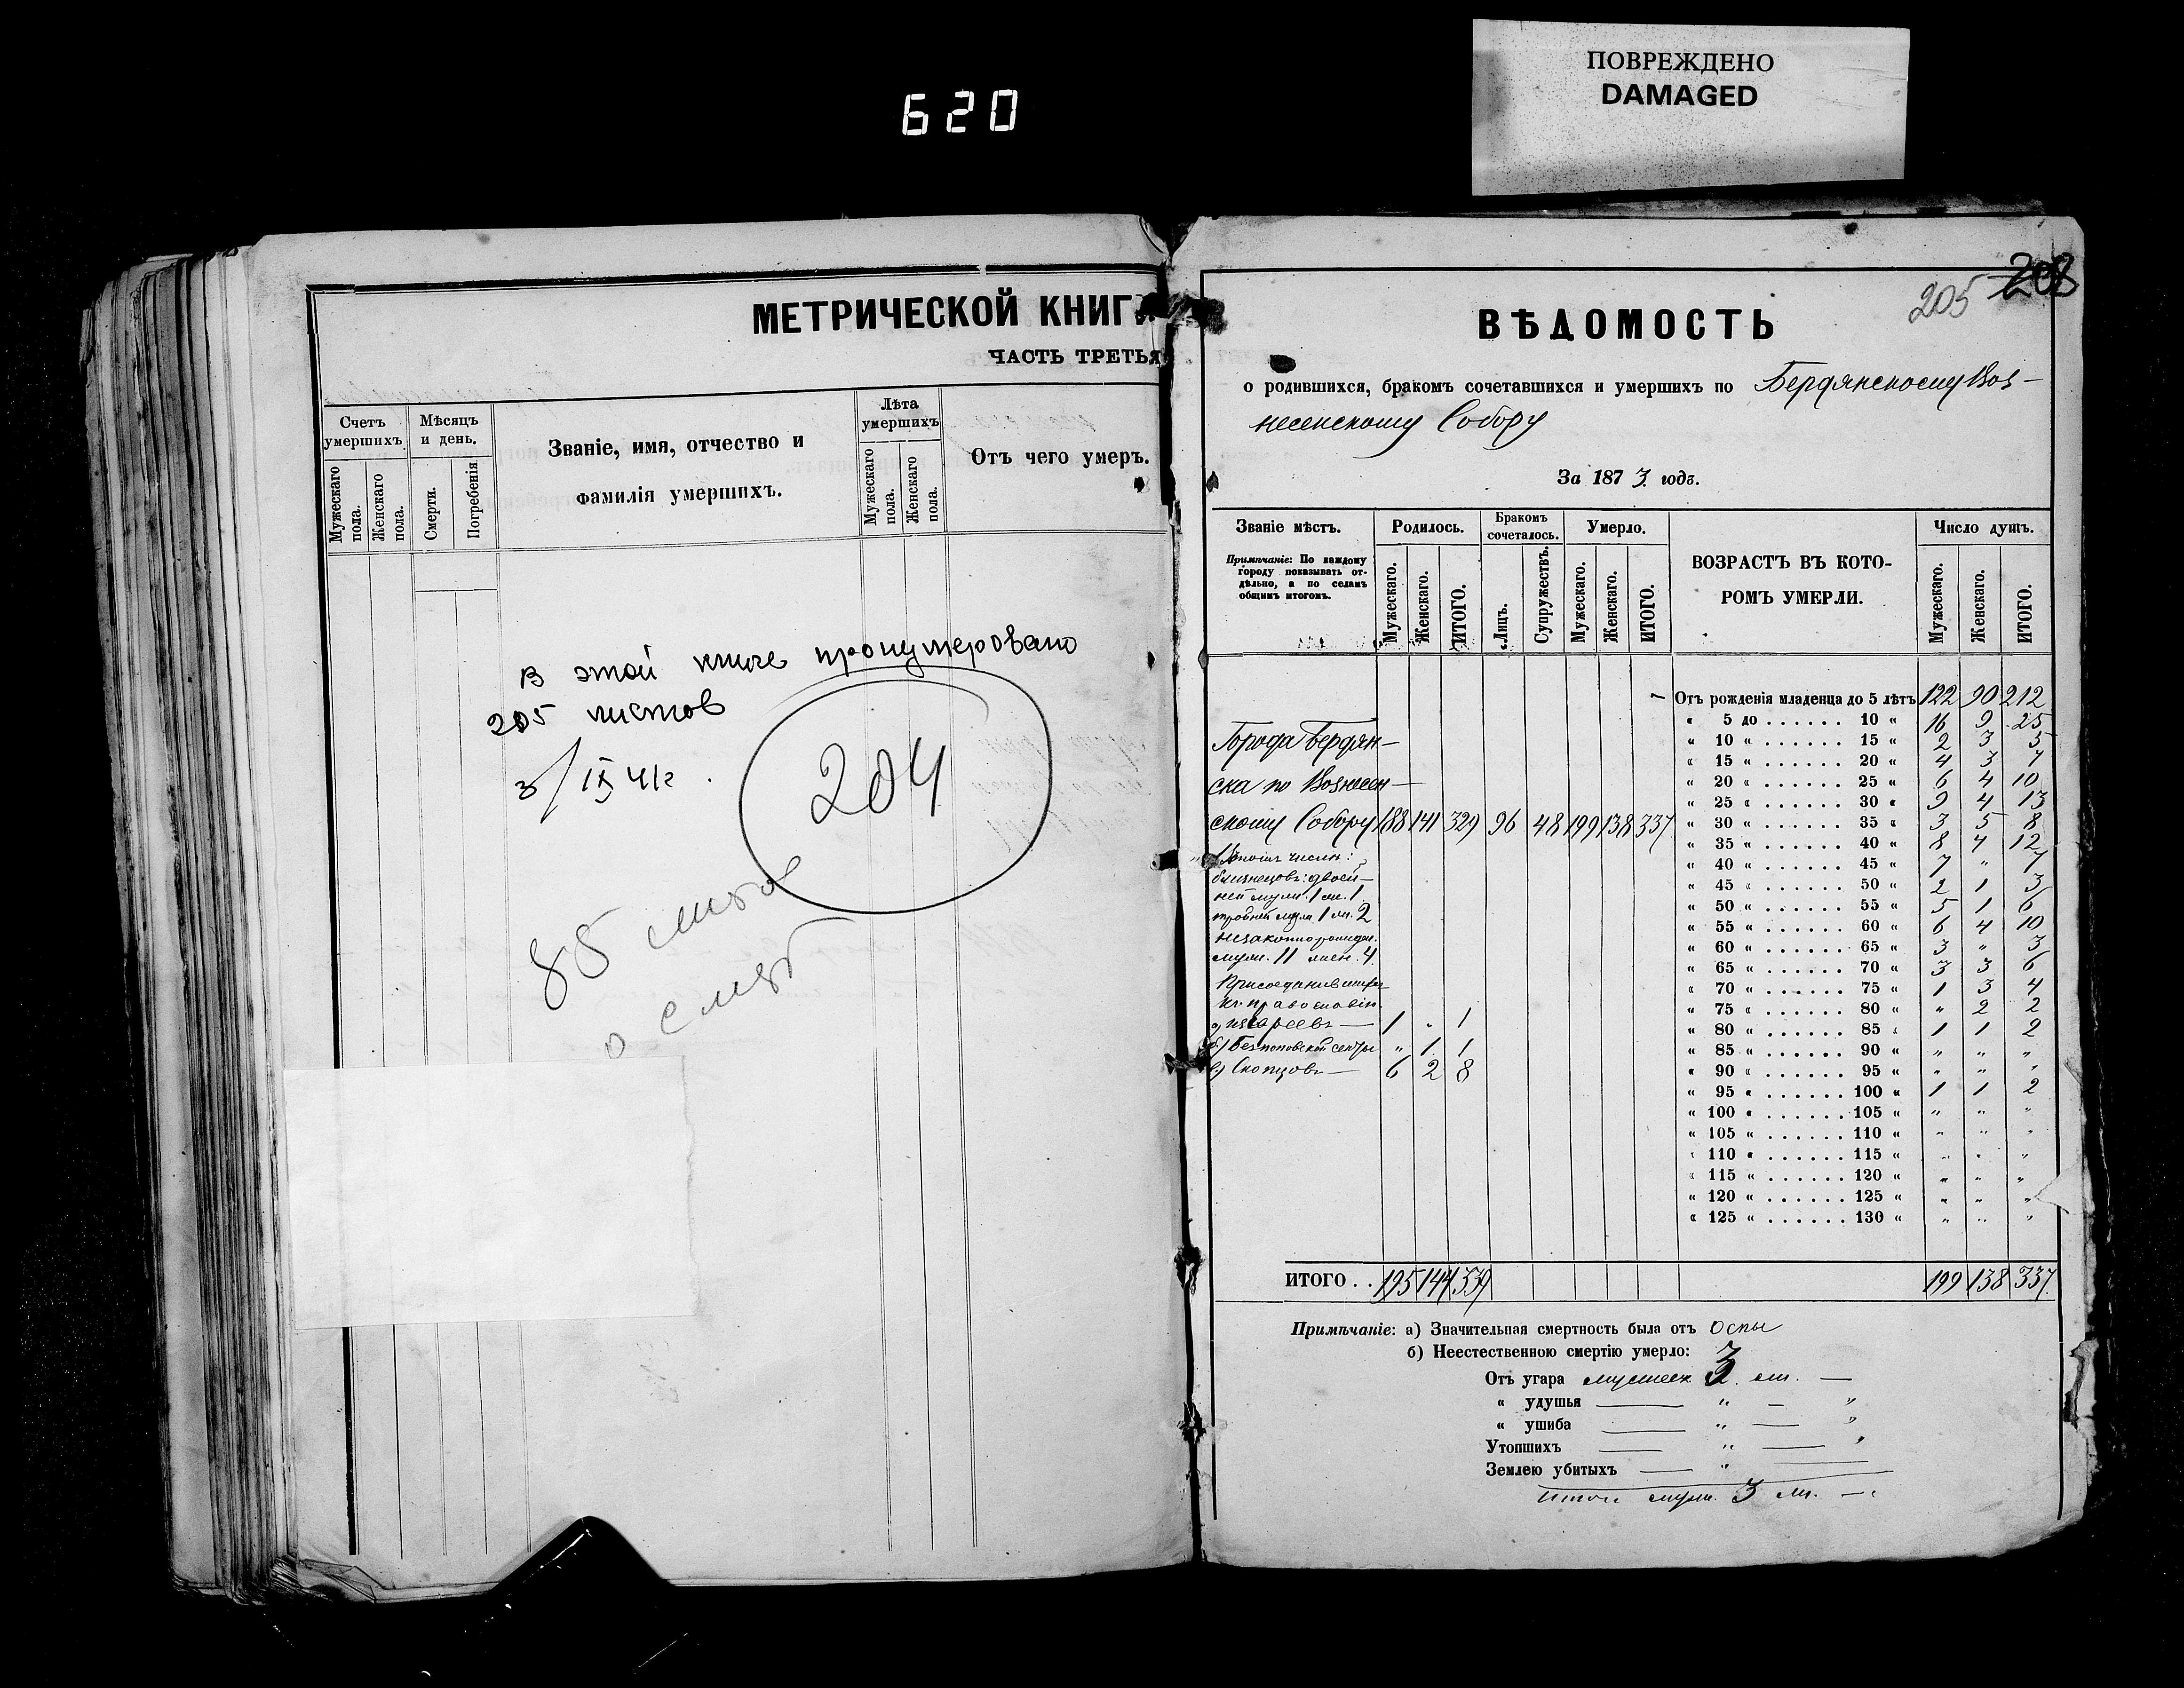 ПОВРЕЖДЕНО
DAMAGED
620
МЕТРИЧЕСКОЙ КНИГ
ЧАСТЬ ТРЕТЬЯ
Счетъ умершихъ.
Мужескаго пола.
Женскаго пола.
Мѣсяцъ и день.
Смерти.
Погребенія
Званіе, имя, отчество и
фамилія умершихъ.
Лѣта умершихъ
Мужескаго пола.
Женскаго пола.
Отъ чего умеръ.
В этой книге пронумеровано
205 листов
3/IX 41г.
204
85
о смерт
205 208
ВѢДОМОСТЬ
о родившихся, бракомъ сочетавшихся и умершихъ по Бердянскому Воз-
несенскому Собору
За 1873 годъ.
Званіе мѣстъ.
Примѣчаніе: По каждому
городу показывать от-
дѣльно, а по селамъ
общимъ итогомъ.
Родилось.
Мужескаго.
Женскаго.
ИТОГО.
Бракомъ сочеталось.
Лицъ.
Супружествъ.
Умерло.
Мужескаго.
Женскаго.
ИТОГО.
ВОЗРАСТЪ ВЪ КОТО-
РОМЪ УМЕРЛИ.
Число душъ.
Мужескаго.
Женскаго.
ИТОГО.
Города Бердян-
ска по Вознесен-
скому Собору 188 141 329 96 48 199 138 337
Въ томъ числѣ:
близнецовъ: двой-
ней муж. 1 ж. 1.
тройней муж. 1 ж. 2
незаконнорожден.
муж. 11 жен. 4.
Присоединившихся
къ православію.
а) изъ евреевъ — 1 „ 1
б) Безпоповской секты „ 1 1
в) Скопцовъ — 6 2 8
Отъ рожденія младенца до 5 лѣтъ 122 90 212
« 5 до . . . . . . 10 « 16 9 25
« 10 « . . . . . . 15 « 2 3 5
« 15 « . . . . . . 20 « 4 3 7
« 20 « . . . . . . 25 « 6 4 10
« 25 « . . . . . . 30 « 9 4 13
« 30 « . . . . . . 35 « 3 5 8
« 35 « . . . . . . 40 « 8 4 12
« 40 « . . . . . . 45 « 7 „ 7
« 45 « . . . . . . 50 « 2 1 3
« 50 « . . . . . . 55 « 5 1 6
« 55 « . . . . . . 60 « 6 4 10
« 60 « . . . . . . 65 « 3 „ 3
« 65 « . . . . . . 70 « 3 3 6
« 70 « . . . . . . 75 « 1 3 4
« 75 « . . . . . . 80 « „ 2 2
« 80 « . . . . . . 85 « 1 1 2
« 85 « . . . . . . 90 « „ „ „
« 90 « . . . . . . 95 « „ „ „
« 95 « . . . . . . 100 « 1 1 2
« 100 « . . . . . . 105 « „ „ „
« 105 « . . . . . . 110 « „ „ „
« 110 « . . . . . . 115 « „ „ „
« 115 « . . . . . . 120 « „ „ „
« 120 « . . . . . . 125 « „ „ „
« 125 « . . . . . . 130 « „ „ „
ИТОГО . . 195 144 339 199 138 337
Примѣчаніе: а) Значительная смертность была отъ Оспы
б) Неестественною смертію умерло:
Отъ угара мужеск. 3 ж. —
« удушья — „ — „
« ушиба — „ — „
Утопшихъ — „ — „
Землею убитыхъ — „ —
Итого муж. 3 ж. —